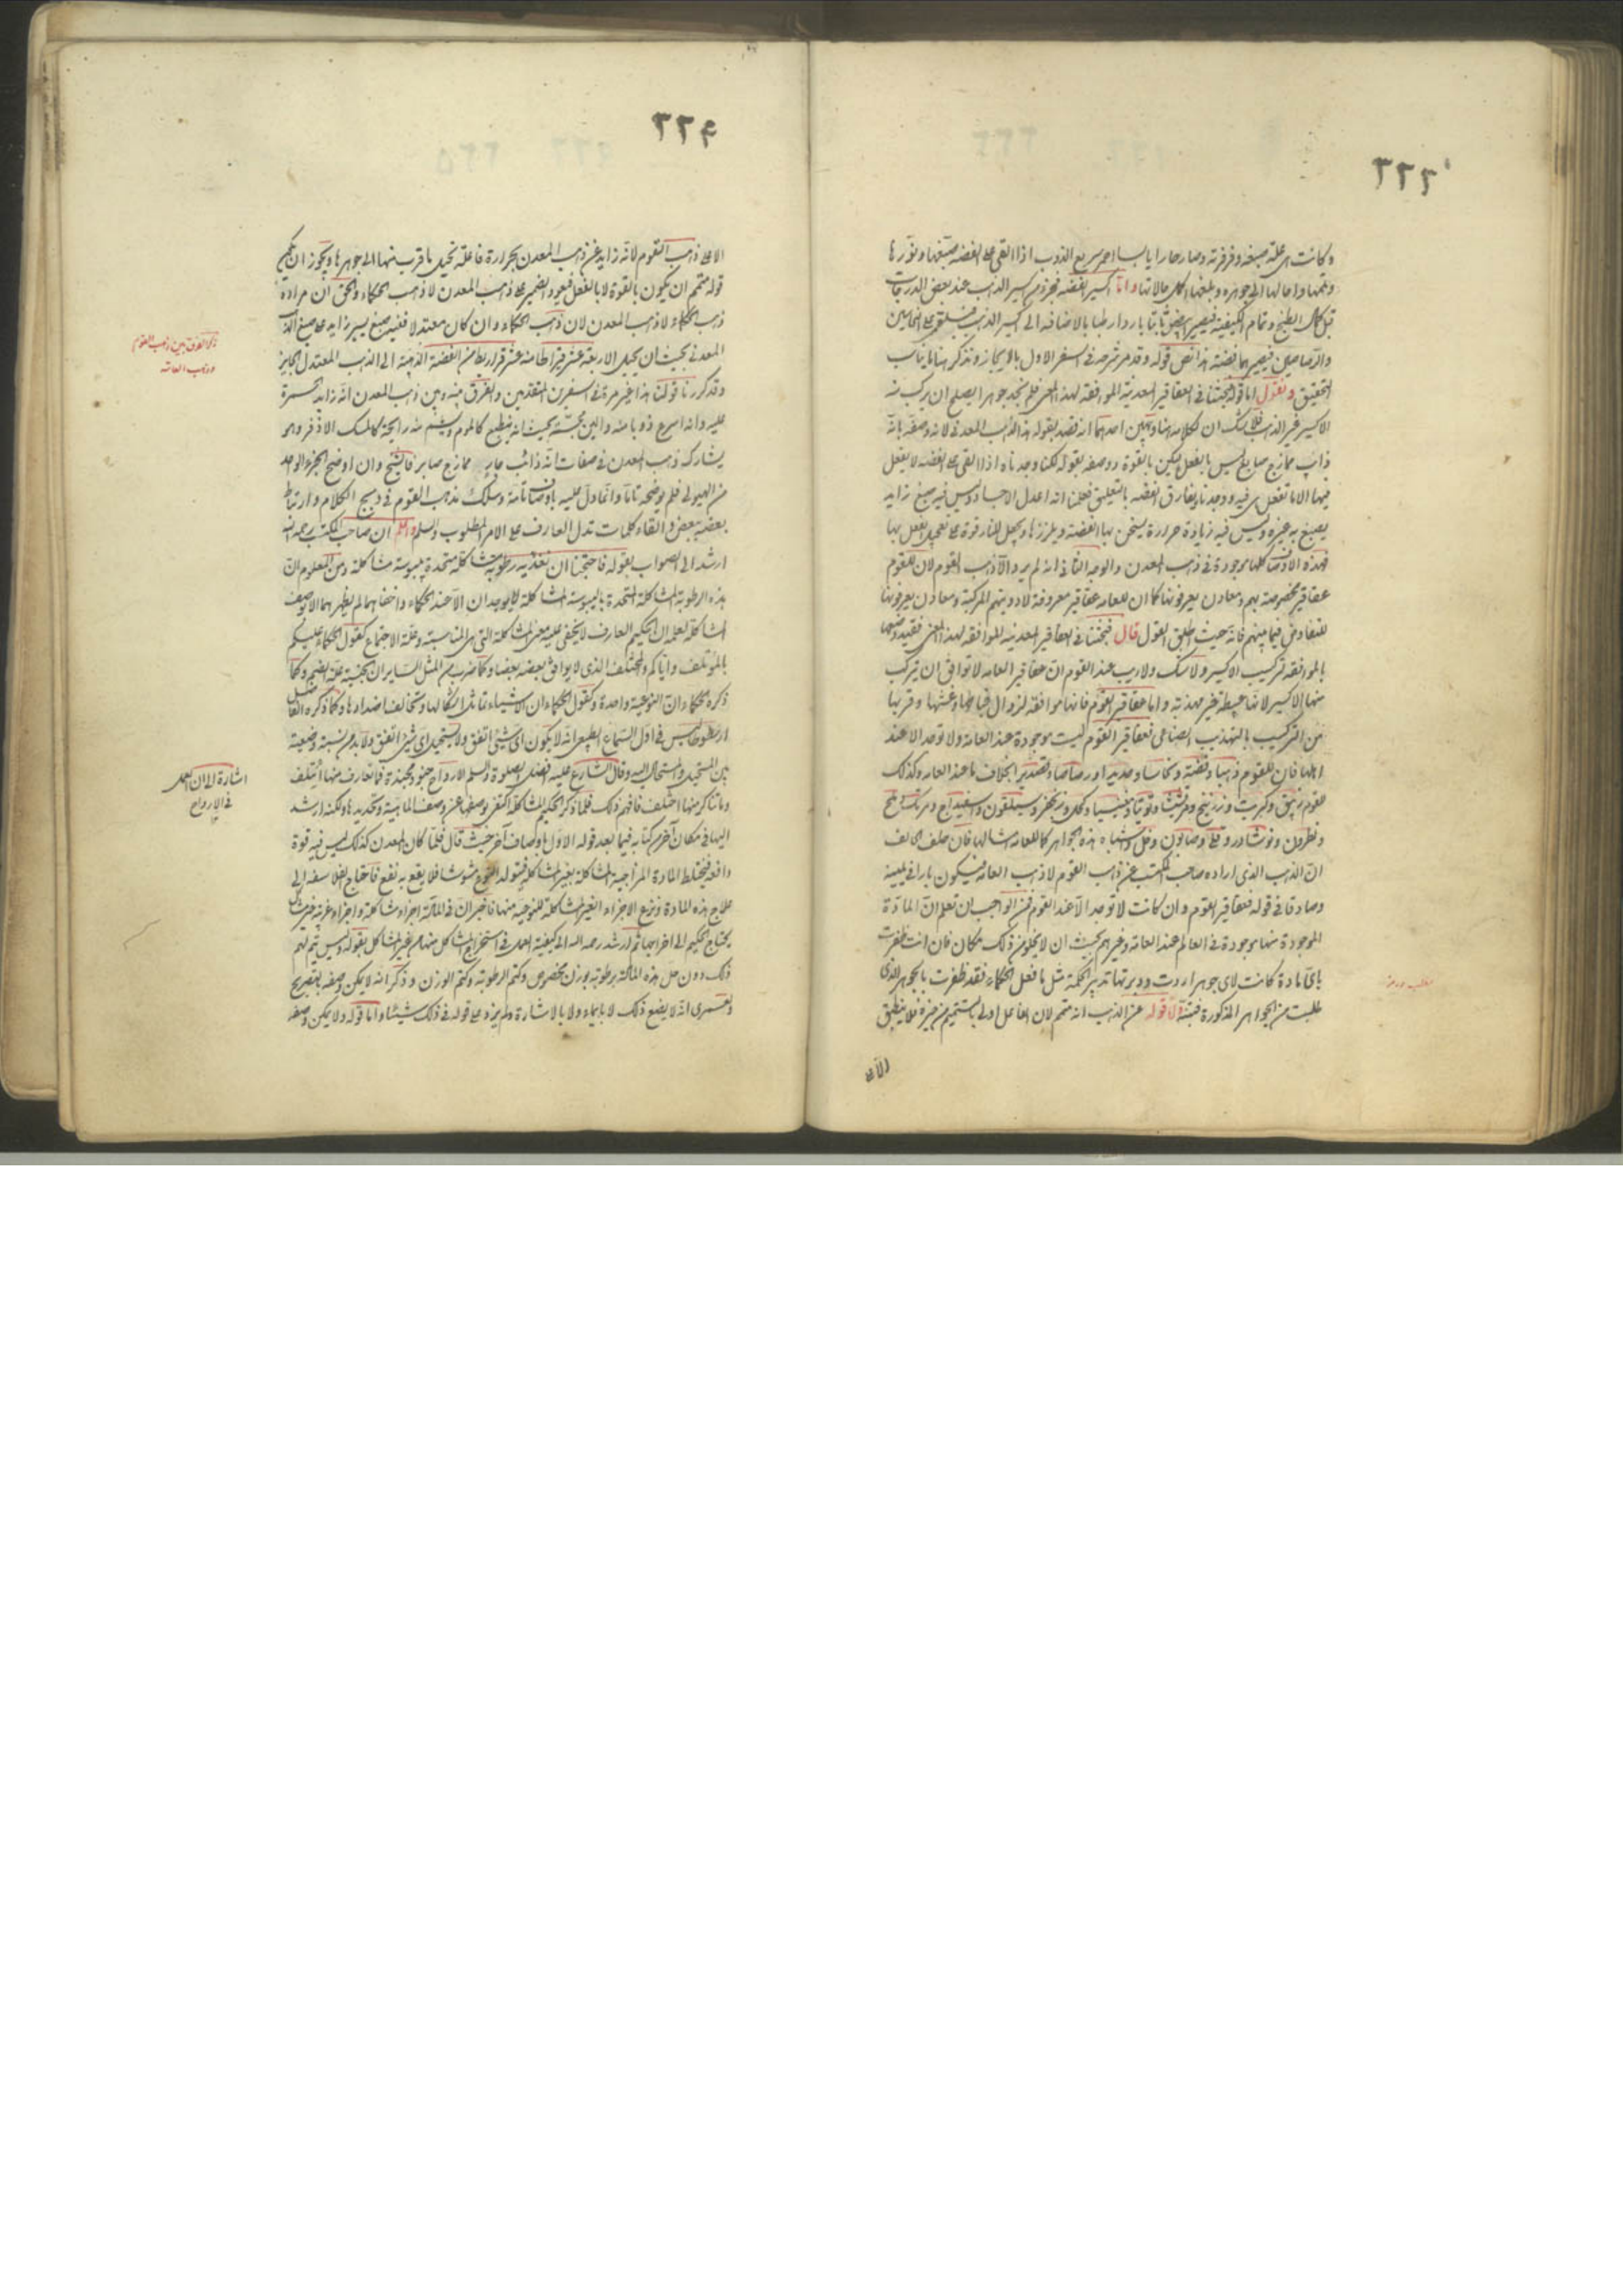 وكانت هى علة صبغه وفرفرته وصار حارا يابسا احمر سريع الذوب اذا القى على الفضه صبغها ونورها
وتممها واحالها الى جوهره وبلغها اكمل حالاتها واما اكسير الفضه فجزء من اكسير الذهب عند بعض الدرجات
قبل كمال الطبخ وتمام الكيفية فيصير ابيض ثابتا باردا رطبا بالاضافه الى اكسير الذهب فيلقى على النحاسين
والرصاصين فيصيرهما فضة هذا نص قوله وقد مر شرحه فى السفر الاول بالايجاز ونذكر هنا ما يناسب
التحقيق ونقول اما قوله بحثنا فى العقاقير المعدنية الموافقه لهذا المعنى فلم نجد جوهرا يصلح ان يركب منه
الاكسير غير الذهب فلا شك ان لكلامه هنا وجهين احدهما انه قصد بقوله هذا الذهب المعدنى لانه وصفه بانه
ذائب ممازج صابغ ليس بالفعل لكن بالقوة ووصفه بقوله لكنا وجدناه اذا القى على الفضه لا يفعل
فيها الا ما تفعل هى فيه ووجدناه يفارق الفضه بالتعليق فعلمنا انه اعدل الاجساد وليس فيه صبغ زايد
يصبغ به غيره وليس فيه زيادة حرارة يسخن بها الفضة ويرزنها ويجعل للنار قوة على تعجيل الفعل بها
فهذه الاوصاف كلها موجودة فى ذهب المعدن والوجه الثانى انه لم يرد الا ذهب القوم لان للقوم
عقاقير مخصوصة بهم ومعادن يعرفونها كما ان للعامه عقاقير معروفة لادويتهم المركبة ومعادن يعرفونها
للتفاوض فيما بينهم فانه حيث اطلق القول قال فبحثنا فى العقاقير المعدنيه الموافقه لهذا المعنى فقيد وخصصها
بالموافقه تركيب الاكسير ولا شك ولا ريب عند القوم ان عقاقير العامه لا توافق ان يتركب
منها الاكسير لانها عبيطة غير مهذبه واما عقاقير القوم فانها موافقه لزوال فسادها وغشها وقربها
من التركيب بالتهذيب الصناعى فعقاقير القوم ليست موجودة عند العامة ولا توجد الا عند
اهلها فان للقوم ذهبا وفضة ونحاسا وحديدا ورصاصا وقصديرا بخلاف ما عند العامه وكذلك
للقوم زيبق وكبريت وزرنيخ ومرقشيثا وتوتيا ومغنيسيا وكحل وزنجفر وسيلقون واسفيداج ومرتك وملح
ونطرون ونوشادر وقلى وصابون وخل واشباه هذه الجواهر كما للعامه امثالها فان حلف حالف
ان الذهب الذى اراده صاحب المكتسب عن ذهب القوم لا ذهب العامه فيكون بارا فى يمينه
وصادقا فى قوله فعقاقير القوم وان كانت لا توجد الا عند القوم فمن الواجب ان تعلم ان المادة
الموجودة منها موجودة فى العالم عند العامه وغيرهم بحيث ان لا يخلو من ذلك مكان فان انت ظفرت
باى مادة كانت لاى جوهر اردت ودبرتها تدبير الحكمة مثل ما فعل الحكماء فقد ظفرت بالجوهر الذى
طلبت من الجواهر المذكورة فتنبه واما قوله عن الذهب انه متمم لان الفاعل اولى بالتتميم من غيره فلا ينطبق
الا على
٢٢٩
الا على ذهب القوم لانه زايد عن ذهب المعدن بحرارة فاعلة تحيل ما قرب منها الى جوهرها ويجوز ان يكون
قوله متمم ان يكون بالقوة لا بالفعل فيعود الضمير على ذهب المعدن لا ذهب الحكماء والحق ان مراده
ذهب الحكماء لا ذهب المعدن لان ذهب الحكماء وان كان معتدلا ففيه صبغ يسير زايد على صبغ الذهب
المعدنى بحيث ان يحيل الاربعة عشر قيراطا منه عشر قراريط من الفضة الذهبية الى الذهب المعتدل الجايز
وقد كررنا قولنا هذا غير مرة فى السفرين المتقدمين والفرق بينه وبين ذهب المعدن انه زايد الحمرة
عليه وانه اسرع ذوبا منه والين مجسة بحيث انه ينطبع كالموم ويشم منه رايحة كالمسك الاذفر وهو
يشارك ذهب المعدن فى صفات انه ذائب جاير ممازج صابر فالشيخ وان اوضح الجزء الواحد
من الهيولى فلم يوضحه تاما وانما دل عليه باوصافا تامة وسلك مذهب القوم فى دمج الكلام وارتباط
بعضه ببعض والقاء كلمات تدل العارف على الامر المطلوب والسلم واعلم ان صاحب المكتسب رحمه الله
ارشد الى الصواب بقوله فاحتجنا ان نغذيه رطوبة مشاكلة متحدة بيبوسة مشاكلة ومن المعلوم ان
هذه الرطوبة المشاكلة المتحدة باليبوسة المشاكلة لا يوجدان الا عند الحكماء واخفاهما لم يظهرهما الا بوصف
المشاكلة لعلمه ان الحكيم العارف لا يخفى عليه معنى المشاكلة التى هى المناسبة وعلة الاجتماع كقول الحكماء عليكم
بالمؤتلف واياكم والمختلف الذى لا يوافق بعضه بعضا وكما ضرب من المثل الساير ان الجنسية علة الضم وكما
ذكره الحكماء ان النوعية واحدة وكقول الحكماء ان الاشياء تماثل اشكالها وتخالف اضدادها وكما ذكره الفاضل
ارسطوطاليس فى اول السماع الطبيعى انه لا يكون اى شيئ اتفق ولا يستحيل اى شيئ اتفق ولا بد من نسبة وضعية
بين المستحيل والمستحال اليه وقال الشارع عليه افضل الصلوة والسلم الارواح جنود مجندة فما تعارف منها ائتلف
وما تناكر منها اختلف فافهم ذلك فلما ذكر الحكيم المشاكلة اكتفى بوصفها عن وصف الماهية وتحديدها ولكنه ارشد
اليها فى مكان آخر من كتابه فيما بعد قوله الاول باوصاف آخر حيث قال فلما كان المعدن كذلك ليس فيه قوة
دافعه فيختلط المادة المزاجية المشاكلة بغير المشاكلة فيتولد النوع مشوشا فلا يقع به نفع فاحتاج الفلاسفه الى
علاج هذه المادة ونزع الاجزاء الغير المشاكلة للنوعية منها فاخبر ان فى المادة اجزاء مشاكلة واجزاء غريبة غير مشاكل
يحتاج الحكيم الى اخراجها ثم ارشد رحمه الله الى كيفية العمل فى استخراج المشاكل منها من غير المشاكل بقوله وليس يتم لهم
ذلك دون حل هذه المادة برطوبة بوزن مخصوص وكتم الرطوبة وكتم الوزن وذكر انه لا يمكن وصفه بتصريح
ولعمرى انه لا يضع ذلك لا بايماء ولا بالاشارة ولم يزد على قوله فى ذلك شيئا واما قوله ولا يمكن وصفه
ذكر الفرق بين ذهب القوم
وذهب العامه
اشارة الى ان العمل
فى الارواح